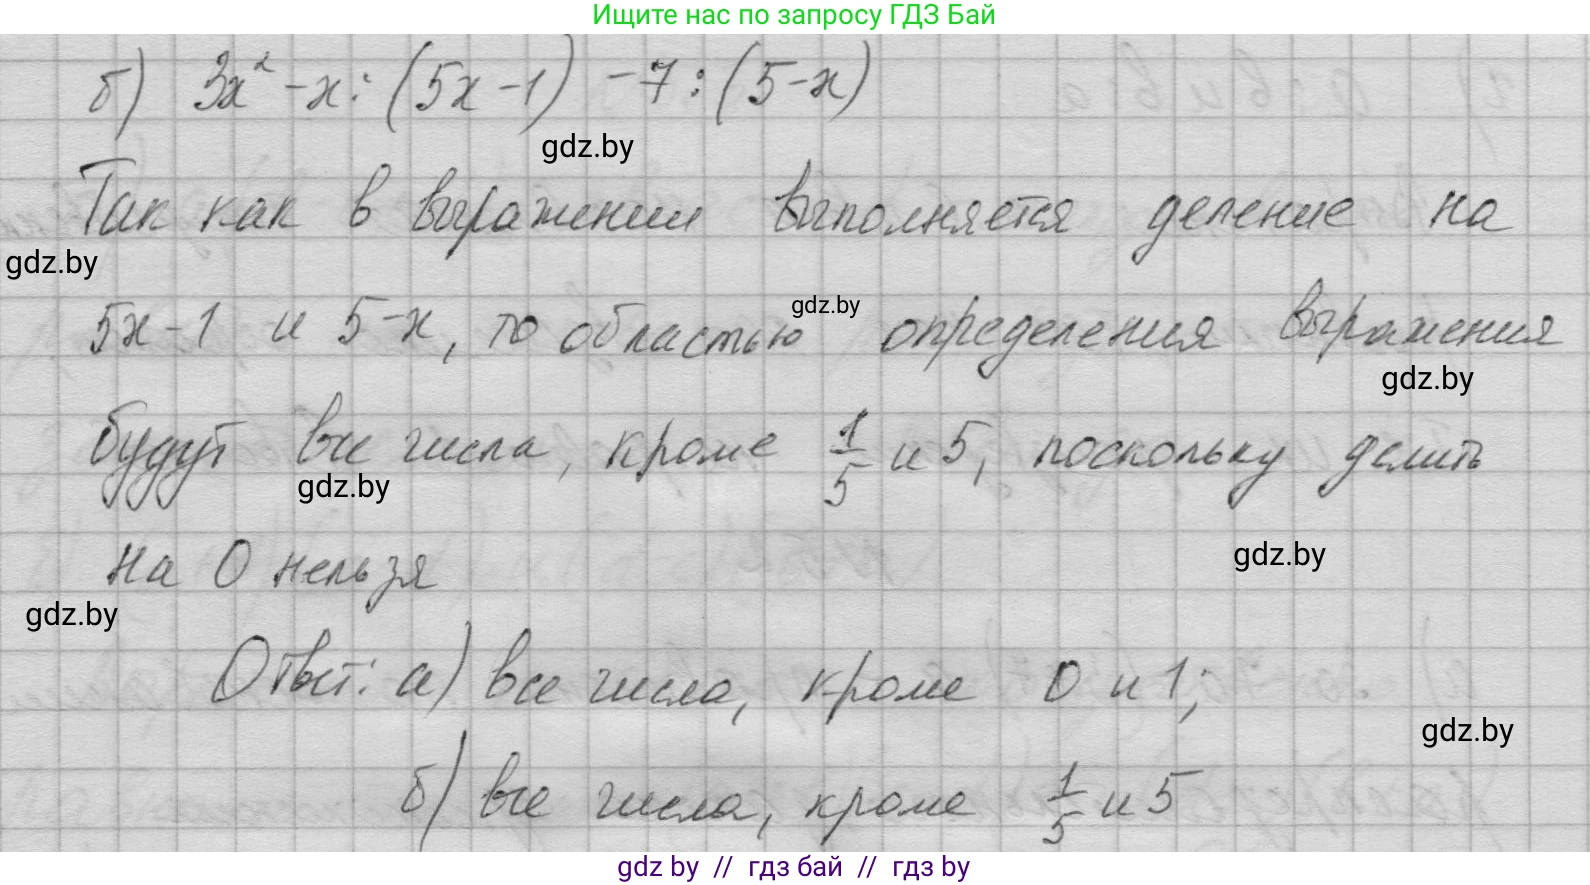 Ищите нас по запросу ГДЗ Бай
б) 3x² - x : (5x - 1) - 7 : (5 - x)
gdz.by
Так как в выражении выполняется деление на
gdz.by
5x - 1 и 5 - x, то областью определения выражения
gdz.by
gdz.by
будут все числа, кроме 1/5 и 5, поскольку делить
gdz.by
на 0 нельзя
gdz.by
gdz.by
Ответ: а) все числа, кроме 0 и 1;
gdz.by
б) все числа, кроме 1/5 и 5
gdz by // гдз бай // гдз by